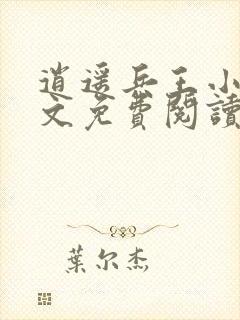 逍遥兵王小
文免費閱讀
葉尔杰